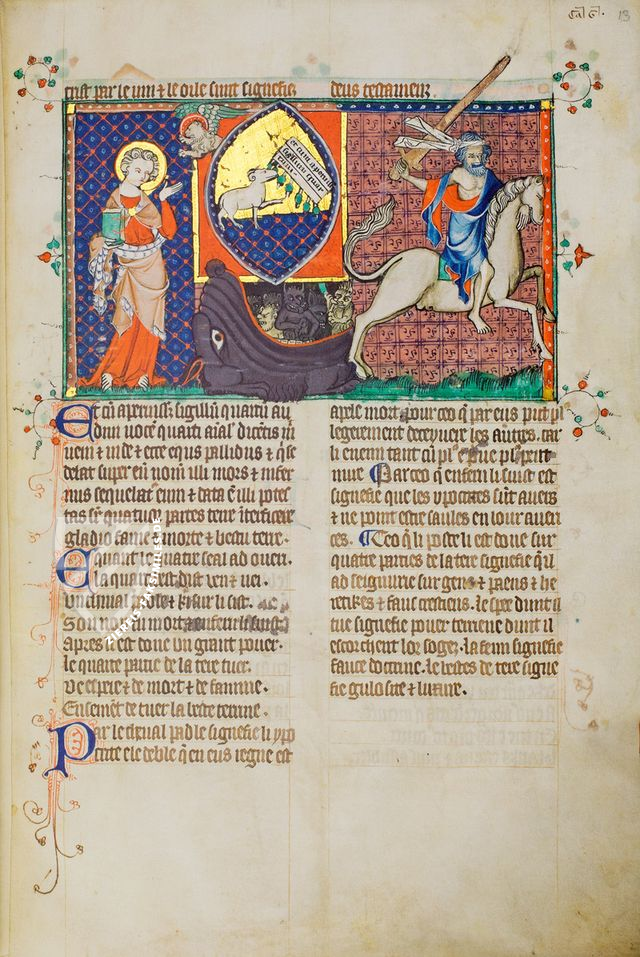 13
cust par le vin ⁊ le oile sunt signefie deus testamenz
Et cū aperuiss; sigillū quartū au
diui vocē quarti aīal dicentis
veni ⁊ uide ⁊ ecce equs pallidus ⁊ q̄ se
debat super eū nom̄ illi mors ⁊ infer
nus sequebat̄ eum ⁊ data ē illi potes
tas sr̄ quatuor partes terre īt̄ficere
gladio fame ⁊ morte ⁊ bestiis terre.
Equant le quarte seal ad overt.
la quarte best dist ven ⁊ vei.
Un chival pasle ⁊ ki sur li sist.
Son non iu mort enfern li suist
Apres li est done un grant pouer.
le quarte partie de la tere tuer.
De espeie ⁊ de mort ⁊ de famine.
Ensement de tuer la beste terrine.
Par le cheual palle signefie li ypo
crite e le deble q̄ en eus regne est
apele mort pour ceo q̄ par eus puet pl
legerement deceyure les autres. car
li enemi tant cū pl' est
nuire Par ceo q̄ enfern li suist est
signefie que les ypocrites sūt auers
⁊ ne point estre saules en lour auen
ces. Ceo q̄ li poste li est done sur
quatre parties de la tere signefie q̄ il
ad seignurie sur gens ⁊ paens ⁊ he
retikes ⁊ faus crestiens. le spee dunt il
tue signefie pouer terriene dunt il
escorchent lor sogez. la feim signefie
fauce doctrine. le bestes de tere signe
fie glulosite ⁊ luxure.